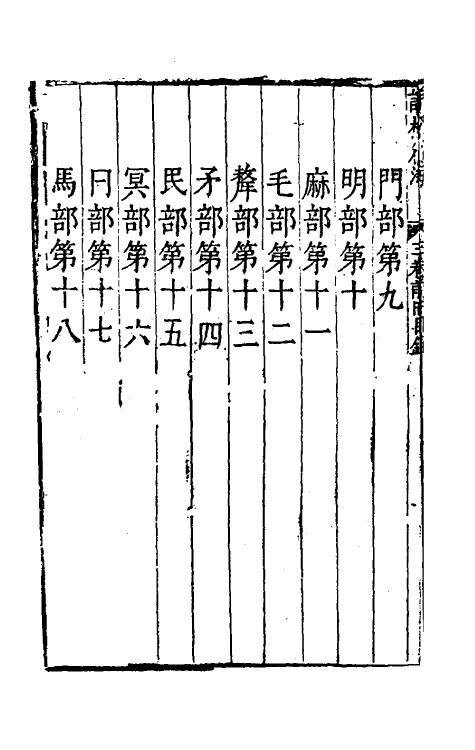 門部第九
明部第十
麻部第十一
毛部第十二
犛部第十三
矛部第十四
民部第十五
冥部第十六
冃部第十七
馬部第十八